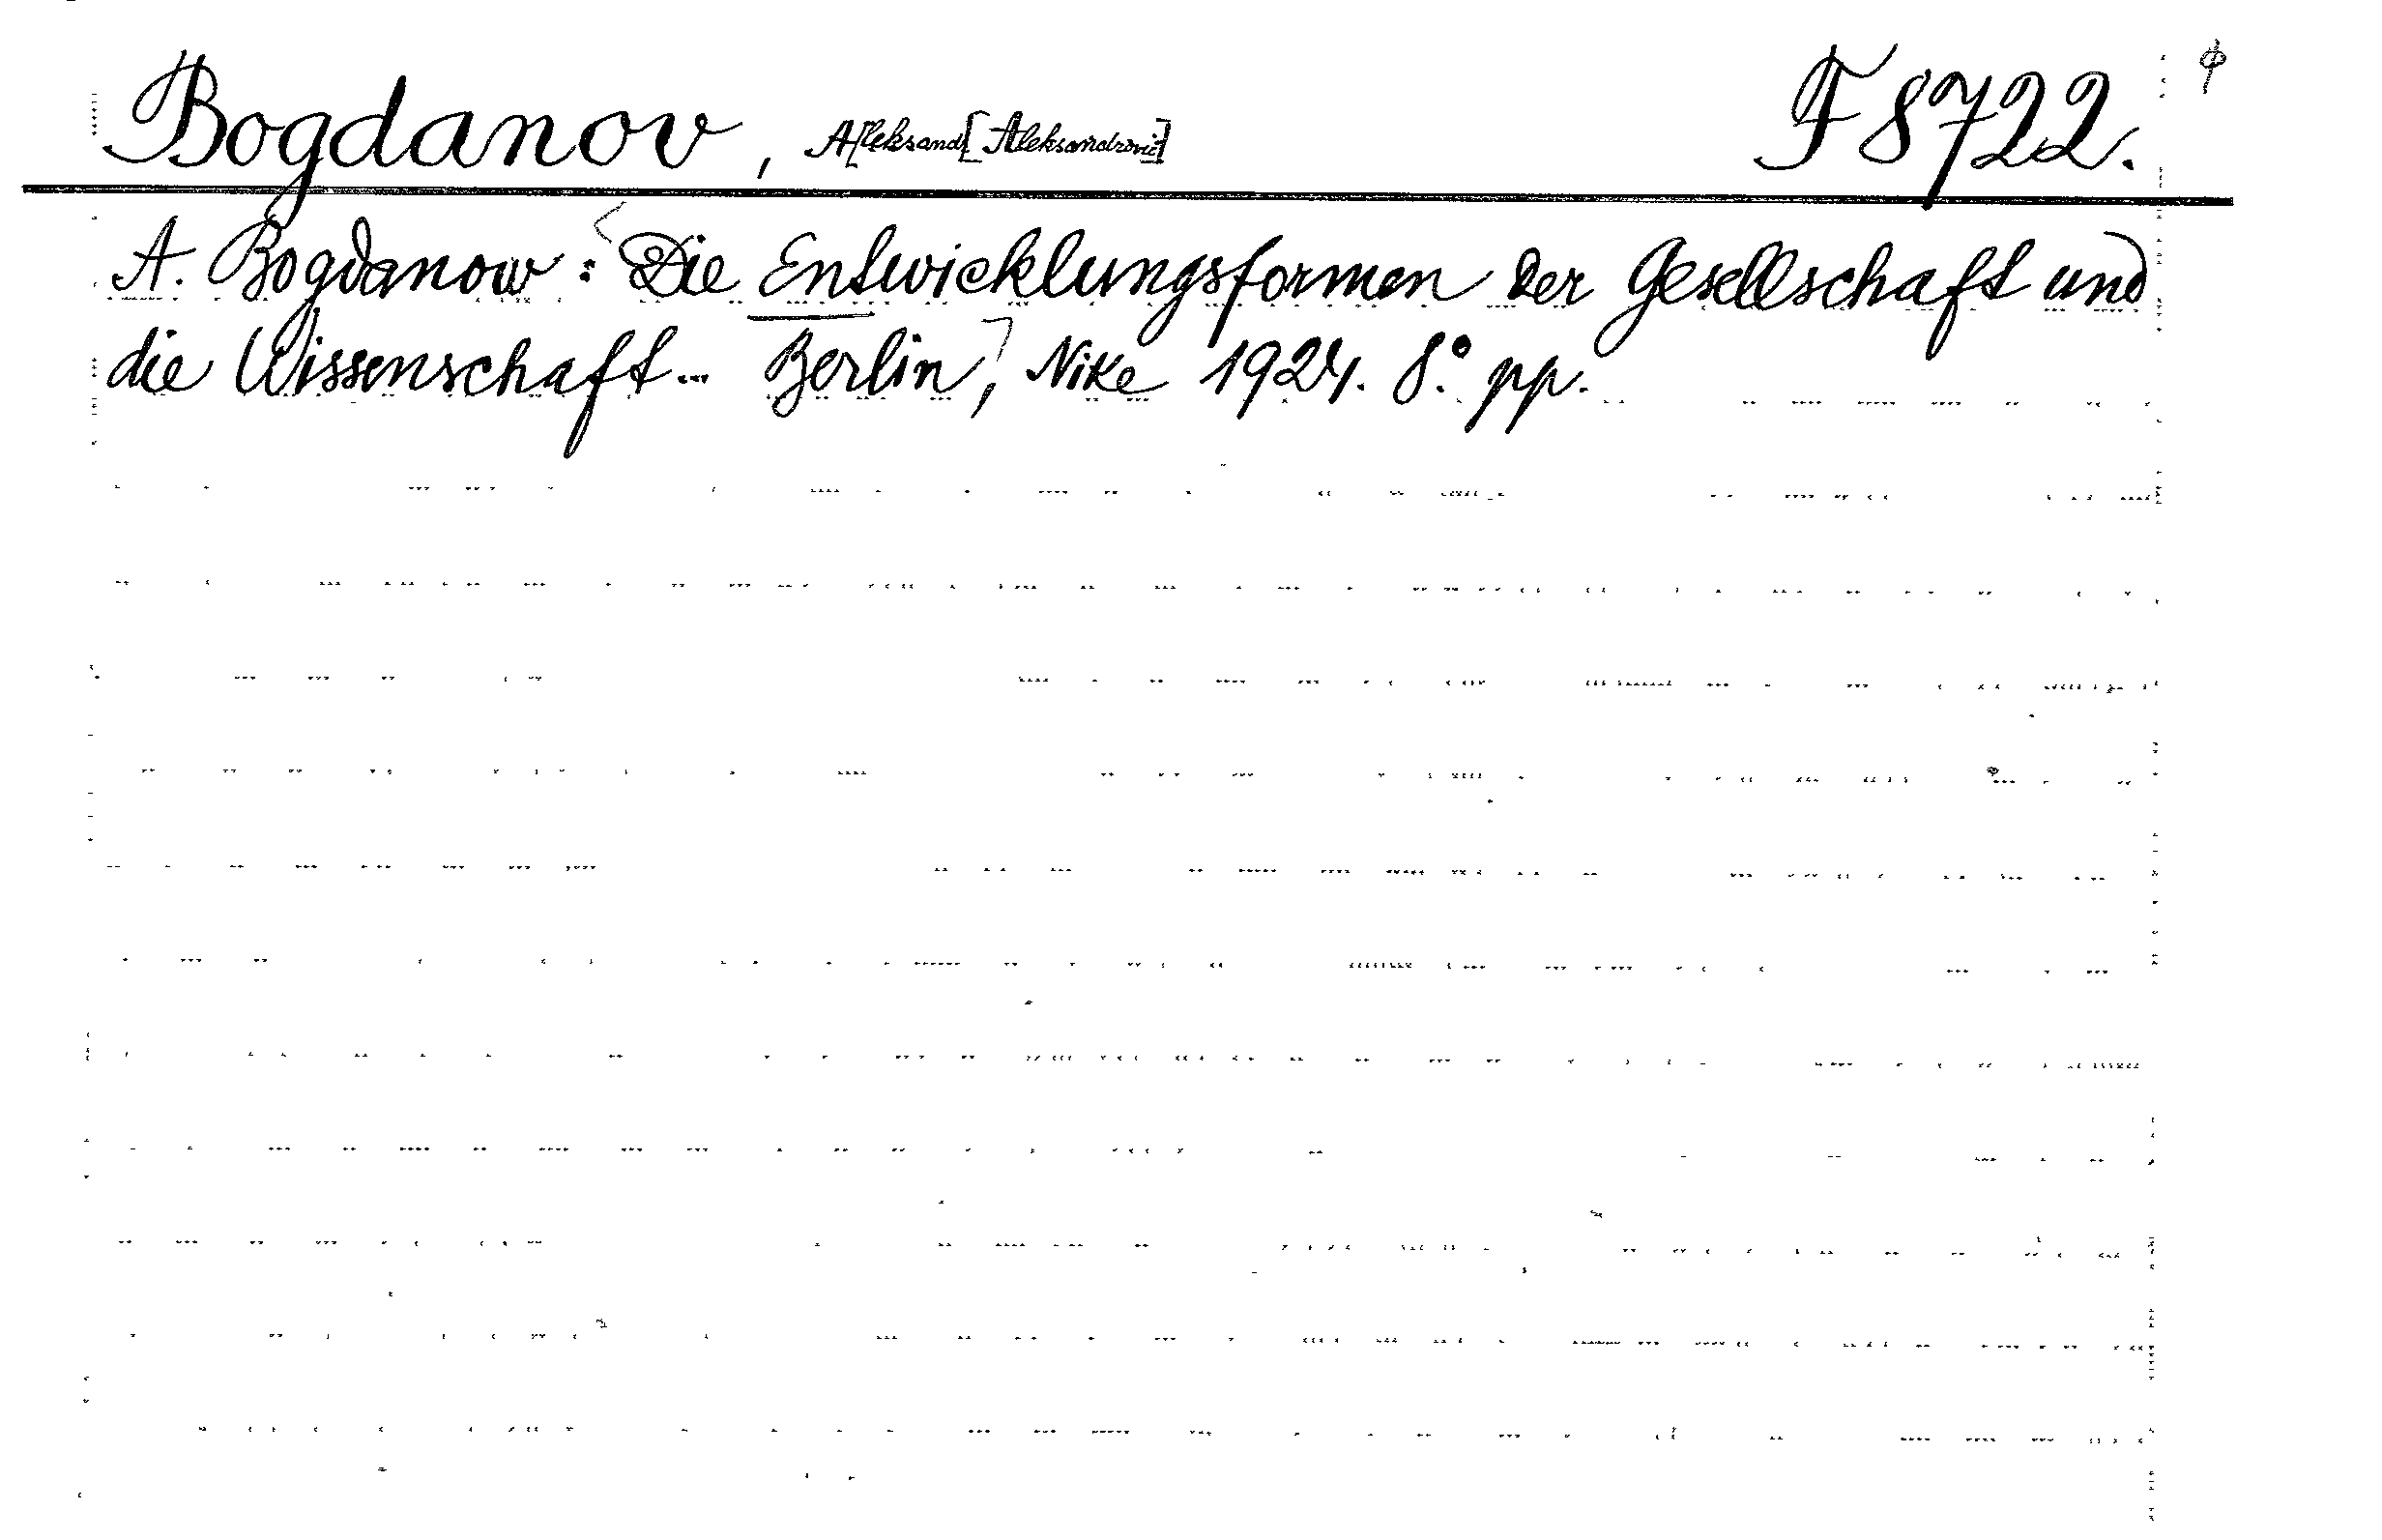 Bogdanov, A[leksandr Aleksandrovič] F 8722.
A. Bogdanow: Die Entwicklungsformen der Gesellschaft und
die Wissenschaft... Berlin, Nike 1924. 8°. pp.